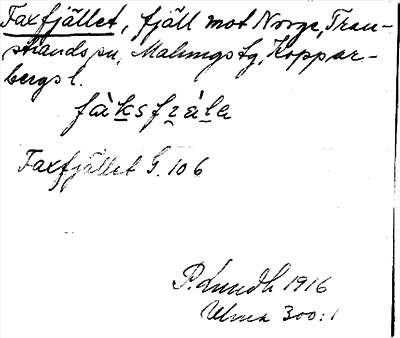 Faxfjället, fjäll mot Norge, Tran-
strands sn, Malungs tg, Koppar-
bergs l.
fàksfʒä̀lα
Faxfjället G. 106
P. Lundh 1916
Ulma 300:1